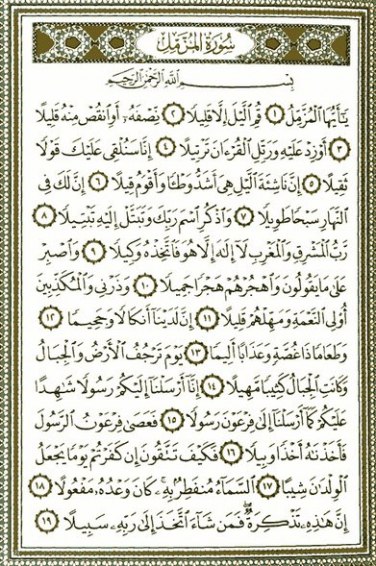 سُورَةُ المُزَّمِّل
بِسْمِ ٱللَّهِ ٱلرَّحْمَٰنِ ٱلرَّحِيمِ
يَٰٓأَيُّهَا ٱلْمُزَّمِّلُ ١ قُمِ ٱلَّيْلَ إِلَّا قَلِيلًا ٢ نِّصْفَهُۥٓ أَوِ ٱنقُصْ مِنْهُ قَلِيلًا
٣ أَوْ زِدْ عَلَيْهِ وَرَتِّلِ ٱلْقُرْءَانَ تَرْتِيلًا ٤ إِنَّا سَنُلْقِى عَلَيْكَ قَوْلًا
ثَقِيلًا ٥ إِنَّ نَاشِئَةَ ٱلَّيْلِ هِىَ أَشَدُّ وَطْـًٔا وَأَقْوَمُ قِيلًا ٦ إِنَّ لَكَ فِى
ٱلنَّهَارِ سَبْحًا طَوِيلًا ٧ وَٱذْكُرِ ٱسْمَ رَبِّكَ وَتَبَتَّلْ إِلَيْهِ تَبْتِيلًا ٨
رَّبُّ ٱلْمَشْرِقِ وَٱلْمَغْرِبِ لَآ إِلَٰهَ إِلَّا هُوَ فَٱتَّخِذْهُ وَكِيلًا ٩ وَٱصْبِرْ
عَلَىٰ مَا يَقُولُونَ وَٱهْجُرْهُمْ هَجْرًا جَمِيلًا ١٠ وَذَرْنِى وَٱلْمُكَذِّبِينَ
أُو۟لِى ٱلنَّعْمَةِ وَمَهِّلْهُمْ قَلِيلًا ١١ إِنَّ لَدَيْنَآ أَنكَالًا وَجَحِيمًا ١٢
وَطَعَامًا ذَا غُصَّةٍ وَعَذَابًا أَلِيمًا ١٣ يَوْمَ تَرْجُفُ ٱلْأَرْضُ وَٱلْجِبَالُ
وَكَانَتِ ٱلْجِبَالُ كَثِيبًا مَّهِيلًا ١٤ إِنَّآ أَرْسَلْنَآ إِلَيْكُمْ رَسُولًا شَٰهِدًا
عَلَيْكُمْ كَمَآ أَرْسَلْنَآ إِلَىٰ فِرْعَوْنَ رَسُولًا ١٥ فَعَصَىٰ فِرْعَوْنُ ٱلرَّسُولَ
فَأَخَذْنَٰهُ أَخْذًا وَبِيلًا ١٦ فَكَيْفَ تَتَّقُونَ إِن كَفَرْتُمْ يَوْمًا يَجْعَلُ
ٱلْوِلْدَٰنَ شِيبًا ١٧ ٱلسَّمَآءُ مُنفَطِرٌۢ بِهِۦ ۚ كَانَ وَعْدُهُۥ مَفْعُولًا ١٨
إِنَّ هَٰذِهِۦ تَذْكِرَةٌ ۖ فَمَن شَآءَ ٱتَّخَذَ إِلَىٰ رَبِّهِۦ سَبِيلًا ١٩